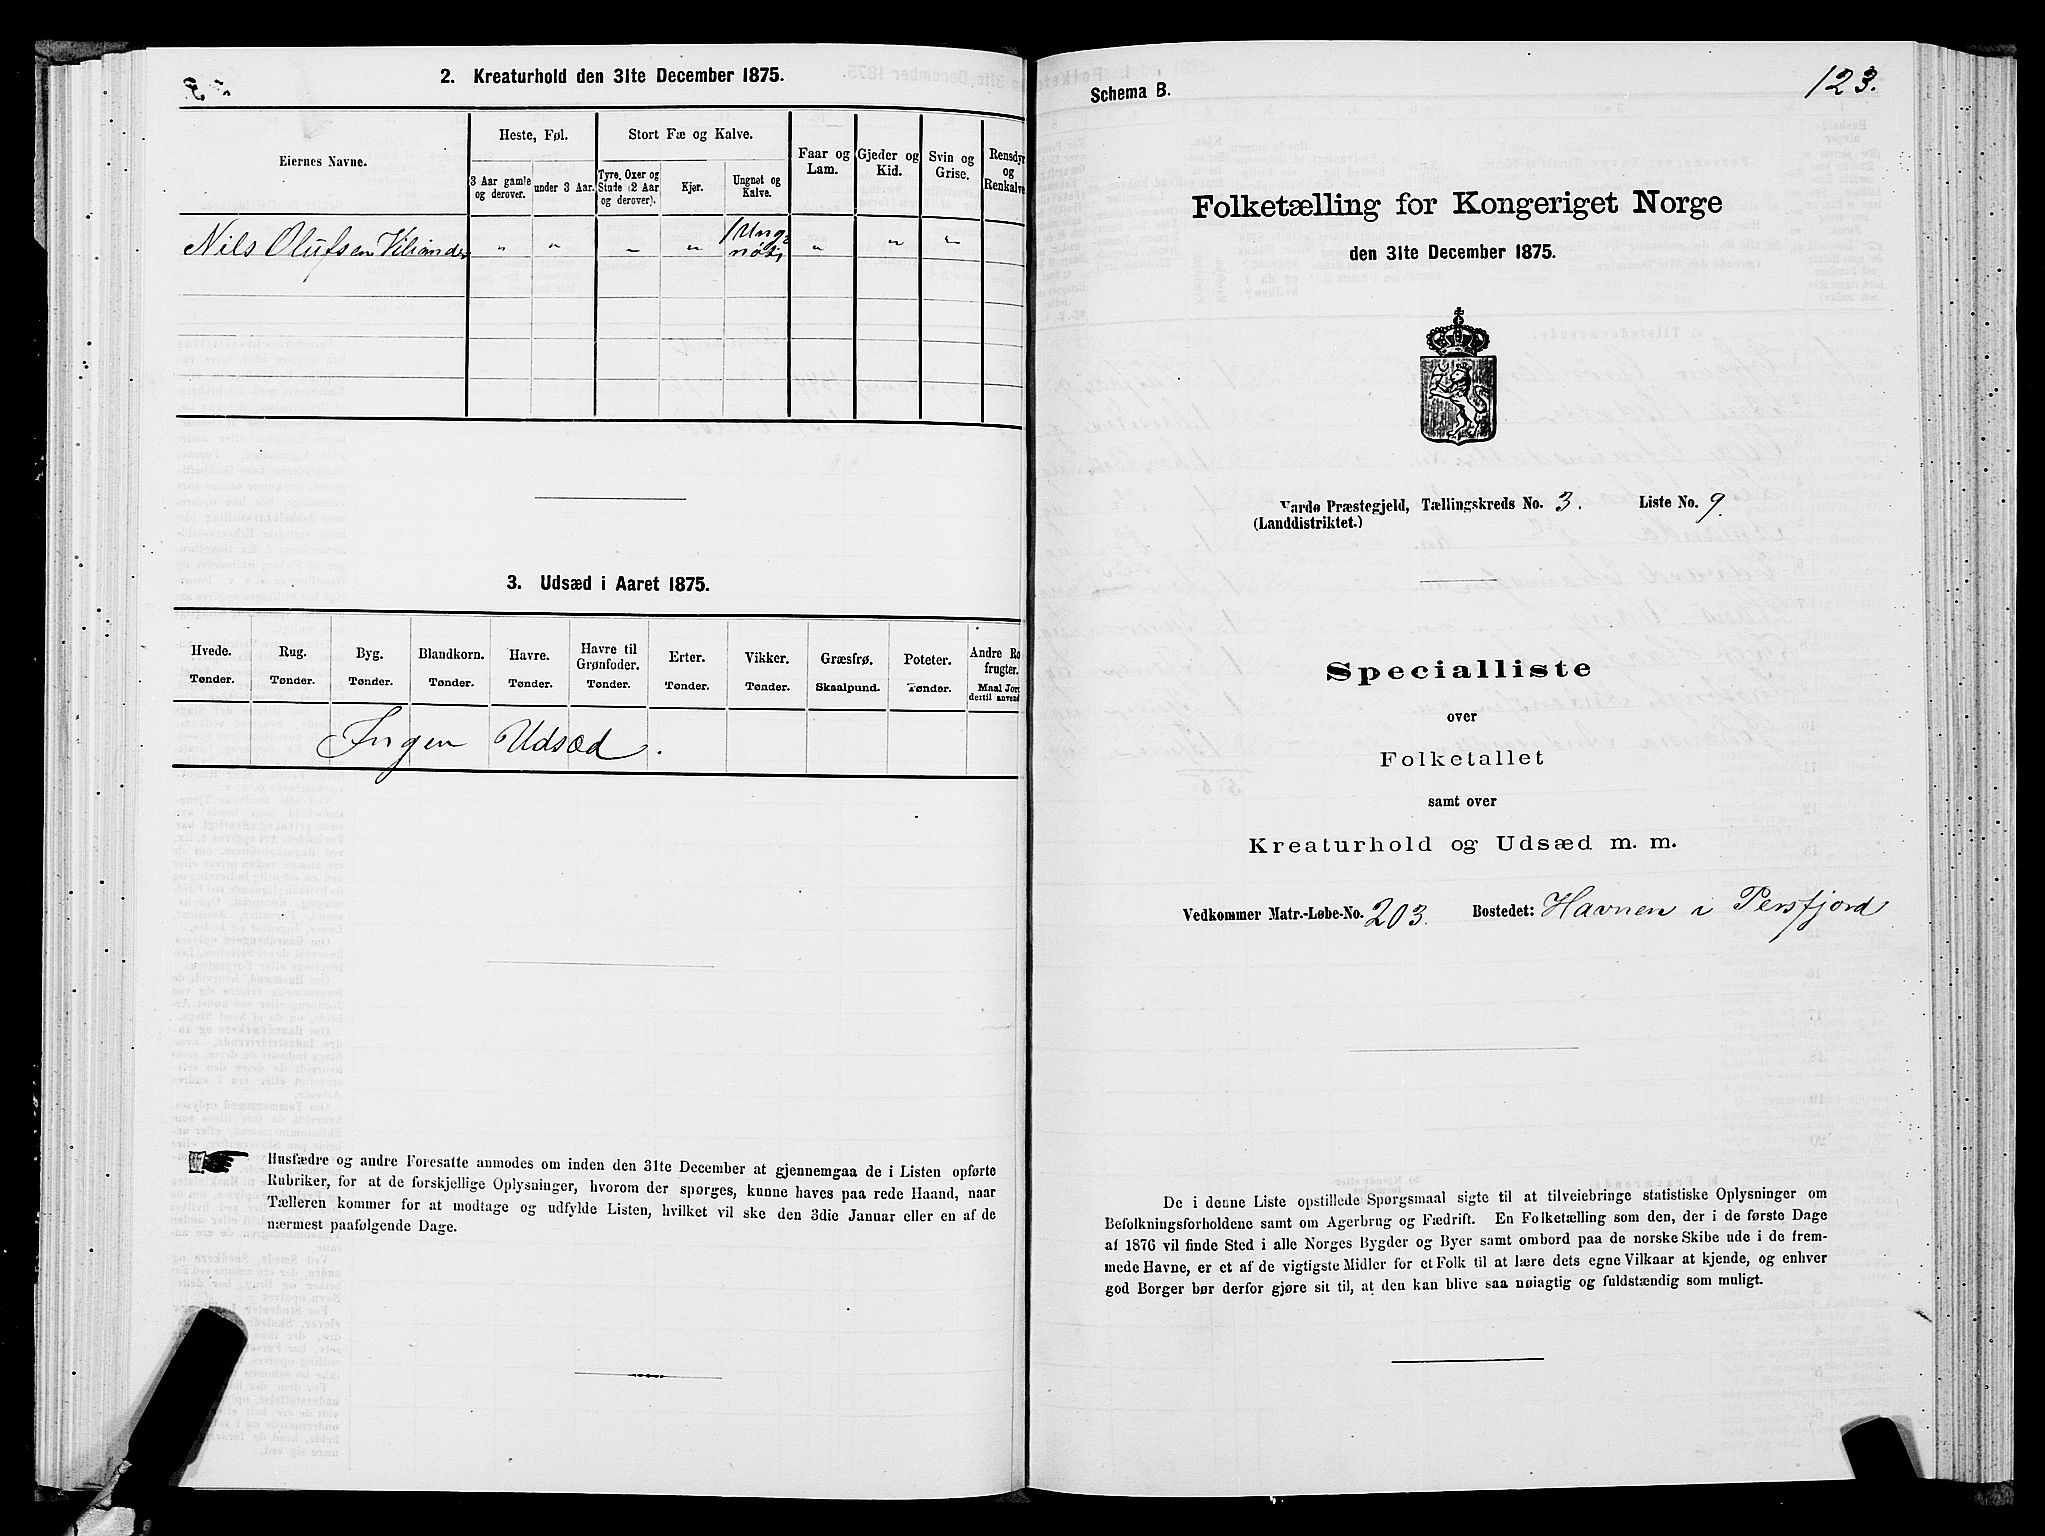 2. Kreaturhold den 31te December 1875.
Eiernes Navne.
Heste, Føl.
Stort Fæ og Kalve.
Faar og Lam.
Gjeder og Kid.
Svin og Grise.
Rensdyr og Renkalve
3 Aar gamle og derover.
under 3 Aar.
Tyre, Oxer og Stude (2 Aar og derover).
Kjør.
Ungnøt og Kalve.
Nils Olufsen " " " " 1 Ung- nøt " " "
3. Udsæd i Aaret 1875.
Hvede. Tønder.
Rug. Tønder.
Byg. Tønder.
Blandkorn. Tønder.
Havre. Tønder.
Havre til Grønfoder. Tønder.
Erter. Tønder.
Vikker. Tønder.
Græsfrø. Skaalpund.
Poteter. Tønder.
Andre Ro frugter. Maal Jor dertil anvend
Ingen Udsæd.
Husfædre og andre Foresatte anmodes om inden den 31te December at gjennemgaa de i Listen opførte
Rubriker, for at de forskjellige Oplysninger, hvorom der spørges, kunne haves paa rede Haand, naar
Tælleren kommer for at modtage og udfylde Listen, hvilket vil ske den 3die Januar eller en af de
nærmest paafølgende Dage.
Schema B.
123.
Folketælling for Kongeriget Norge
den 31te December 1875.
Vardø Præstegjeld, Tællingskreds No. 3. Liste No. 9.
(Landdistriktet.)
Specialliste
over
Folketallet
samt over
Kreaturhold og Udsæd m. m.
Vedkommer Matr.-Løbe-No. 203. Bostedet: Havnen i Persfjord
De i denne Liste opstillede Spørgsmaal sigte til at tilveiebringe statistiske Oplysninger om
Befolkningsforholdene samt om Agerbrug og Fædrift. En Folketælling som den, der i de første Dage
af 1876 vil finde Sted i alle Norges Bygder og Byer samt ombord paa de norske Skibe ude i de frem-
mede Havne, er et af de vigtigste Midler for et Folk til at lære dets egne Vilkaar at kjende, og enhver
god Borger bør derfor gjøre sit til, at den kan blive saa nøiagtig og fuldstændig som muligt.